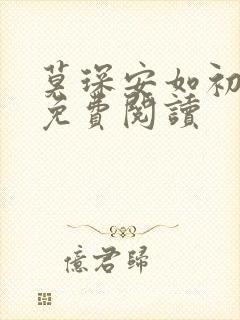 莫琛安如初
免費閱讀
億君歸